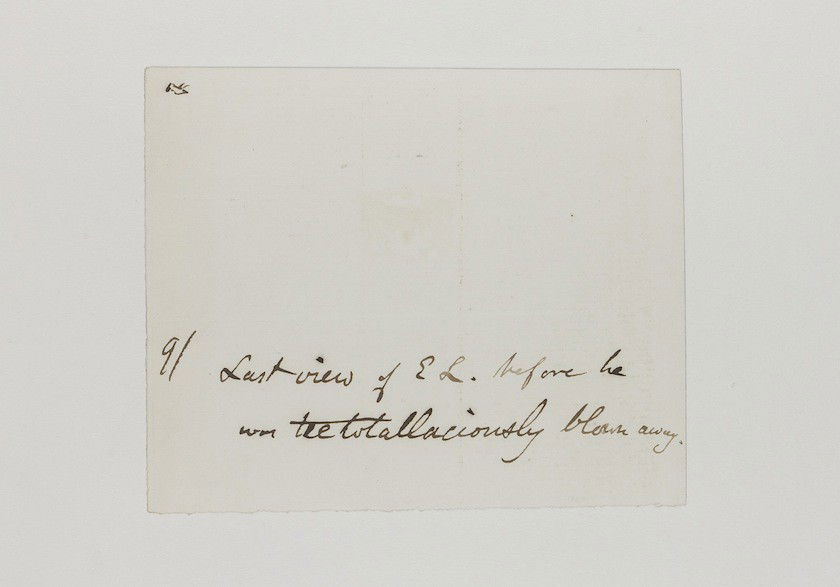 9/ Last view of E L. before he
was teetotallaciously blown away.